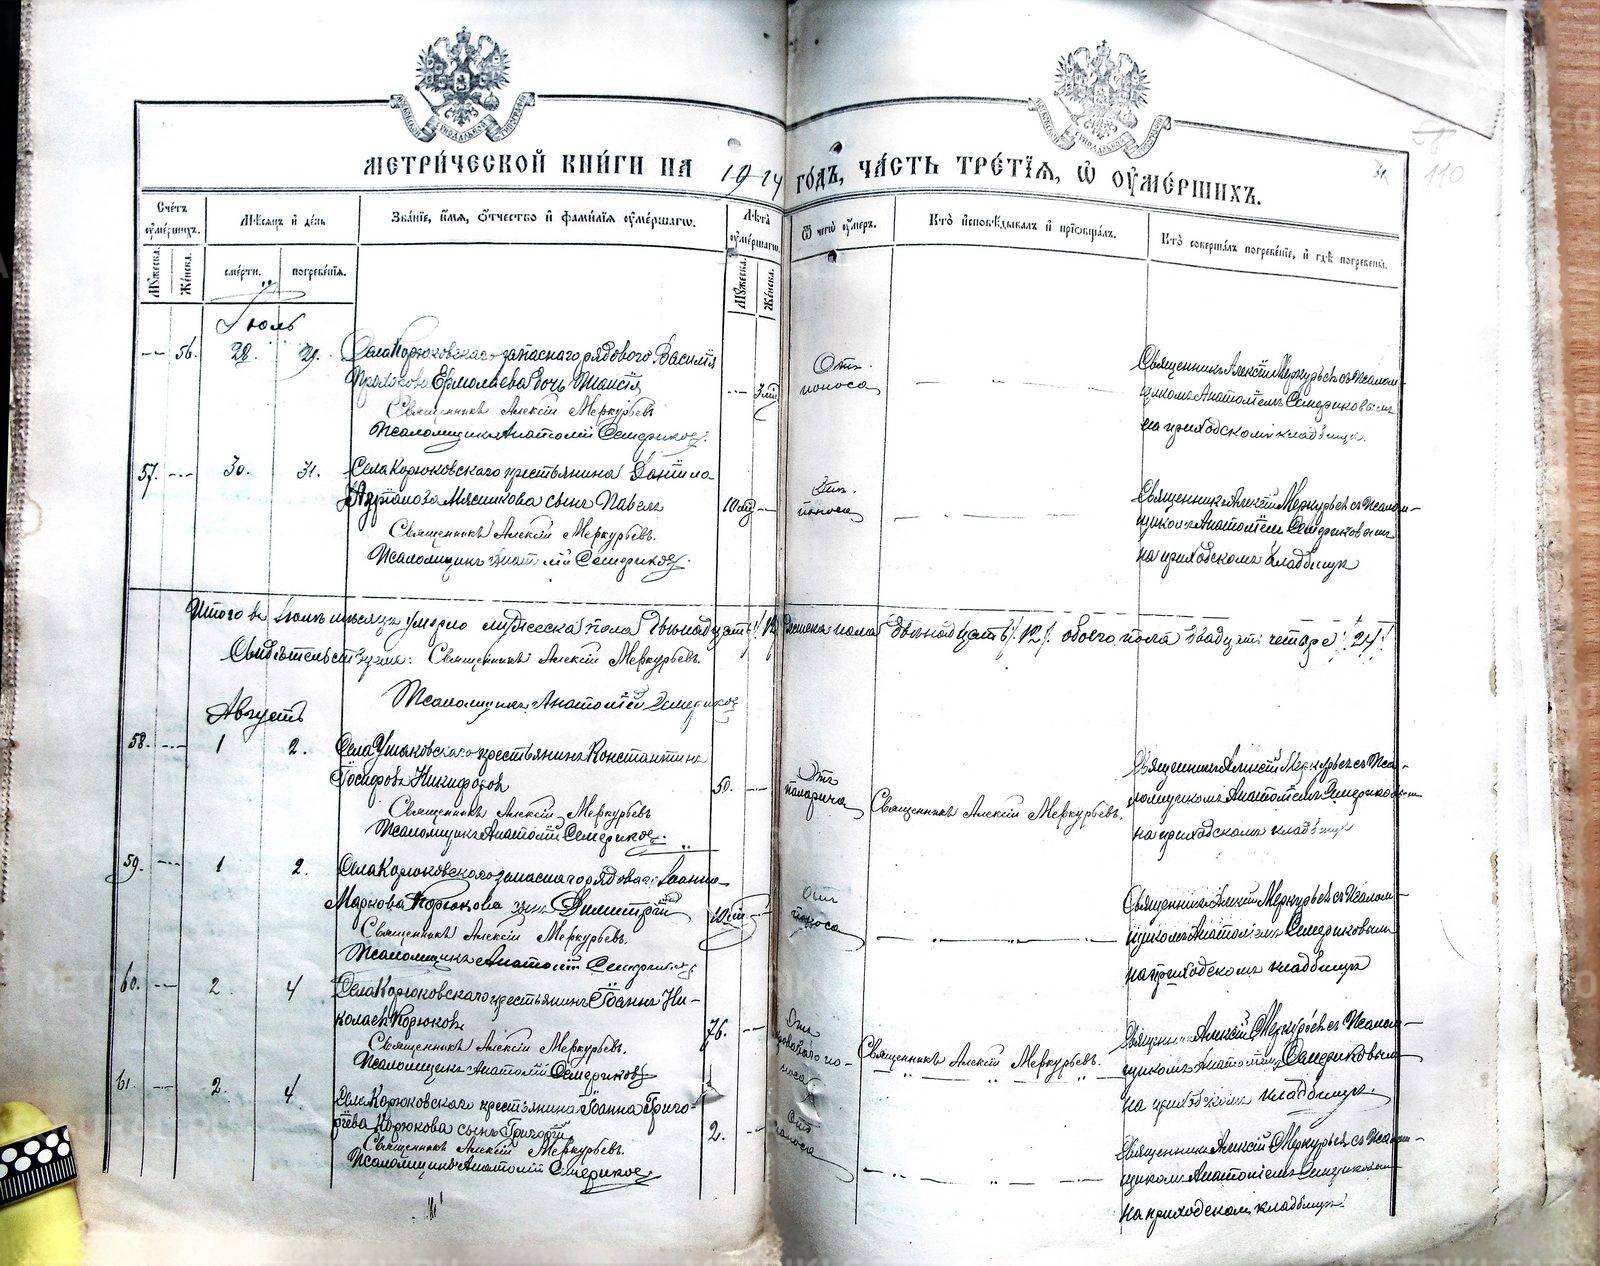 МЕТРИ́ЧЕСКОЙ КНИ́ГИ НА 1914 ГО́ДЪ, ЧА́СТЬ ТРЕ́ТІѦ, Ѡ҆ ОУ҆МЕ́РШИХЪ.
110
Сче́тъ оу҆ме́ршихъ.
Мѣ́сяцъ и҆ де́нь
Зва́нїе, и҆́мя, ѻ҆́тчество и҆ фами́лїя оу҆ме́ршагѡ.
Лѣ́та оу҆ме́ршагѡ.
Ѿ чегѡ̀ оу҆́меръ.
Кто̀ и҆сповѣ́дывалъ и҆ прїѡбща́лъ.
Кто̀ соверша́лъ погребе́нїе, и҆ гдѣ̀ погребены̀.
Мꙋ́жеска. Же́нска. сме́рти. погребе́нїя. Мꙋ́жеска. Же́нска.
Іюль
56. 28. 29. Села Корюковскаго запаснаго рядового Василія
Ермолаева дочь Таисія
Отъ поноса
Священникъ Алексій Меркурьевъ
Псаломщикъ Анатолій Семериковъ.
Священникъ Алексій Меркурьевъ съ Псалом-
щикомъ Анатоліемъ Семериковымъ
на приходскомъ кладбищѣ.
57. 30. 31. Села Корюковскаго крестьянина Даніила
Мясникова сынъ Павелъ
Отъ поноса
Священникъ Алексій Меркурьевъ.
Псаломщикъ Анатолій Семериковъ.
Священникъ Алексій Меркурьевъ съ Псалом-
щикомъ Анатоліемъ Семериковымъ
на приходскомъ кладбищѣ
Итого въ Іюлѣ мѣсяцѣ умерло мужеска пола двѣнадцать /12/ женска пола двѣнадцать /12/ обоего пола двадцать четыре /24/
Свидѣтельствуемъ: Священникъ Алексій Меркурьевъ.
Псаломщикъ Анатолій Семериковъ
Августъ
58. 1 2. Села Ушаковскаго крестьянинъ Константинъ
Іосифовъ Никифоровъ
50.
Отъ
Священникъ Алексій Меркурьевъ.
Священникъ Алексій Меркурьевъ
Псаломщикъ Анатолій Семериковъ.
Священникъ Алексій Меркурьевъ съ Пса-
ломщикомъ Анатоліемъ Семериковымъ
на приходскомъ кладбищѣ
59. 1 2. Села Корюковскаго запаснаго рядового Іоанна
Маркова Корюкова сынъ Димитрій
Отъ поноса
Священникъ Алексій Меркурьевъ.
Псаломщикъ Анатолій Семериковъ
Священникъ Алексій Меркурьевъ съ Псалом-
щикомъ Анатоліемъ Семериковымъ
на приходскомъ кладбищѣ
60. 2. 4 Села Корюковскаго крестьянинъ Іоаннъ Ни-
колаевъ Корюковъ
76.
Отъ кроваваго поноса
Священникъ Алексій Меркурьевъ.
Священникъ Алексій Меркурьевъ.
Псаломщикъ Анатолій Семериковъ
Священникъ Алексій Меркурьевъ съ Псалом-
щикомъ Анатоліемъ Семериковымъ
на приходскомъ кладбищѣ.
61. 2. 4. Села Корюковскаго крестьянина Іоанна Григо-
рьева Корюкова сынъ Григорій
2.
Отъ поноса
Священникъ Алексій Меркурьевъ.
Псаломщикъ Анатолій Семериковъ.
Священникъ Алексій Меркурьевъ съ Псалом-
щикомъ Анатоліемъ Семериковымъ
на приходскомъ кладбищѣ.